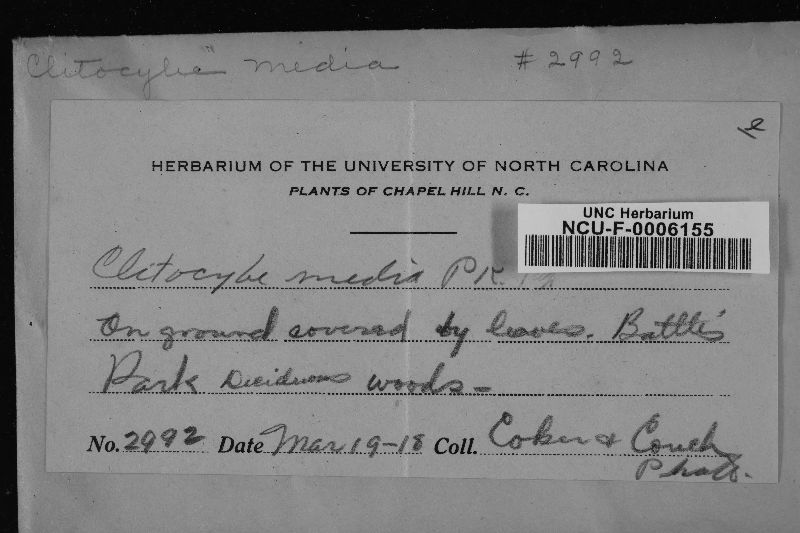 Clitocybe media #2992
e
HERBARIUM OF THE UNIVERSITY OF NORTH CAROLINA
PLANTS OF CHAPEL HILL N. C.
UNC Herbarium
NCU-F-0006155
Clitocybe media Pk.
On ground covered by leaves. Battle's
Park Deciduous woods-
No. 2992 Date Mar 19-18 Coll. Coker & Couch
Photo.